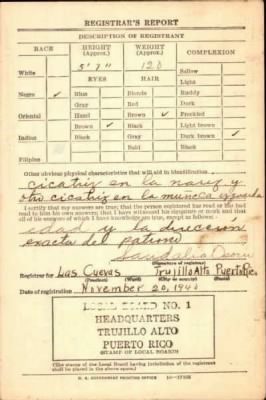 REGISTRAR'S REPORT
DESCRIPTION OF REGISTRANT
RACE HEIGHT (Approx.) WEIGHT (Approx.) COMPLEXION
5' 7" 120
White Sallow
EYES HAIR Light
Negro ✓ Blue Blonde Ruddy
Gray Red Dark
Oriental Hazel Brown ✓ Freckled
Brown ✓ Black Light brown
Indian Black Gray Dark brown ✓
Bald Black
Filipino
Other obvious physical characteristics that will aid in identification
cicatriz en la nariz y
otra cicatriz en la muñeca izquierda
I certify that my answers are true; that the person registered has read or has had
read to him his own answers; that I have witnessed his signature or mark and that
all of his answers of which I have knowledge are true, except as follows:
edad y la dirección
exacta del patrono
(Signature of registrar)
Registrar for Las Cuevas Trujillo Alto Puerto Rico
(Precinct) (Ward) (City or county) (State)
Date of registration November 20, 1940
LOCAL BOARD NO. 1
HEADQUARTERS
TRUJILLO ALTO
PUERTO RICO
(STAMP OF LOCAL BOARD)
(The stamp of the Local Board having jurisdiction of the registrant
shall be placed in the above space.)
U. S. GOVERNMENT PRINTING OFFICE